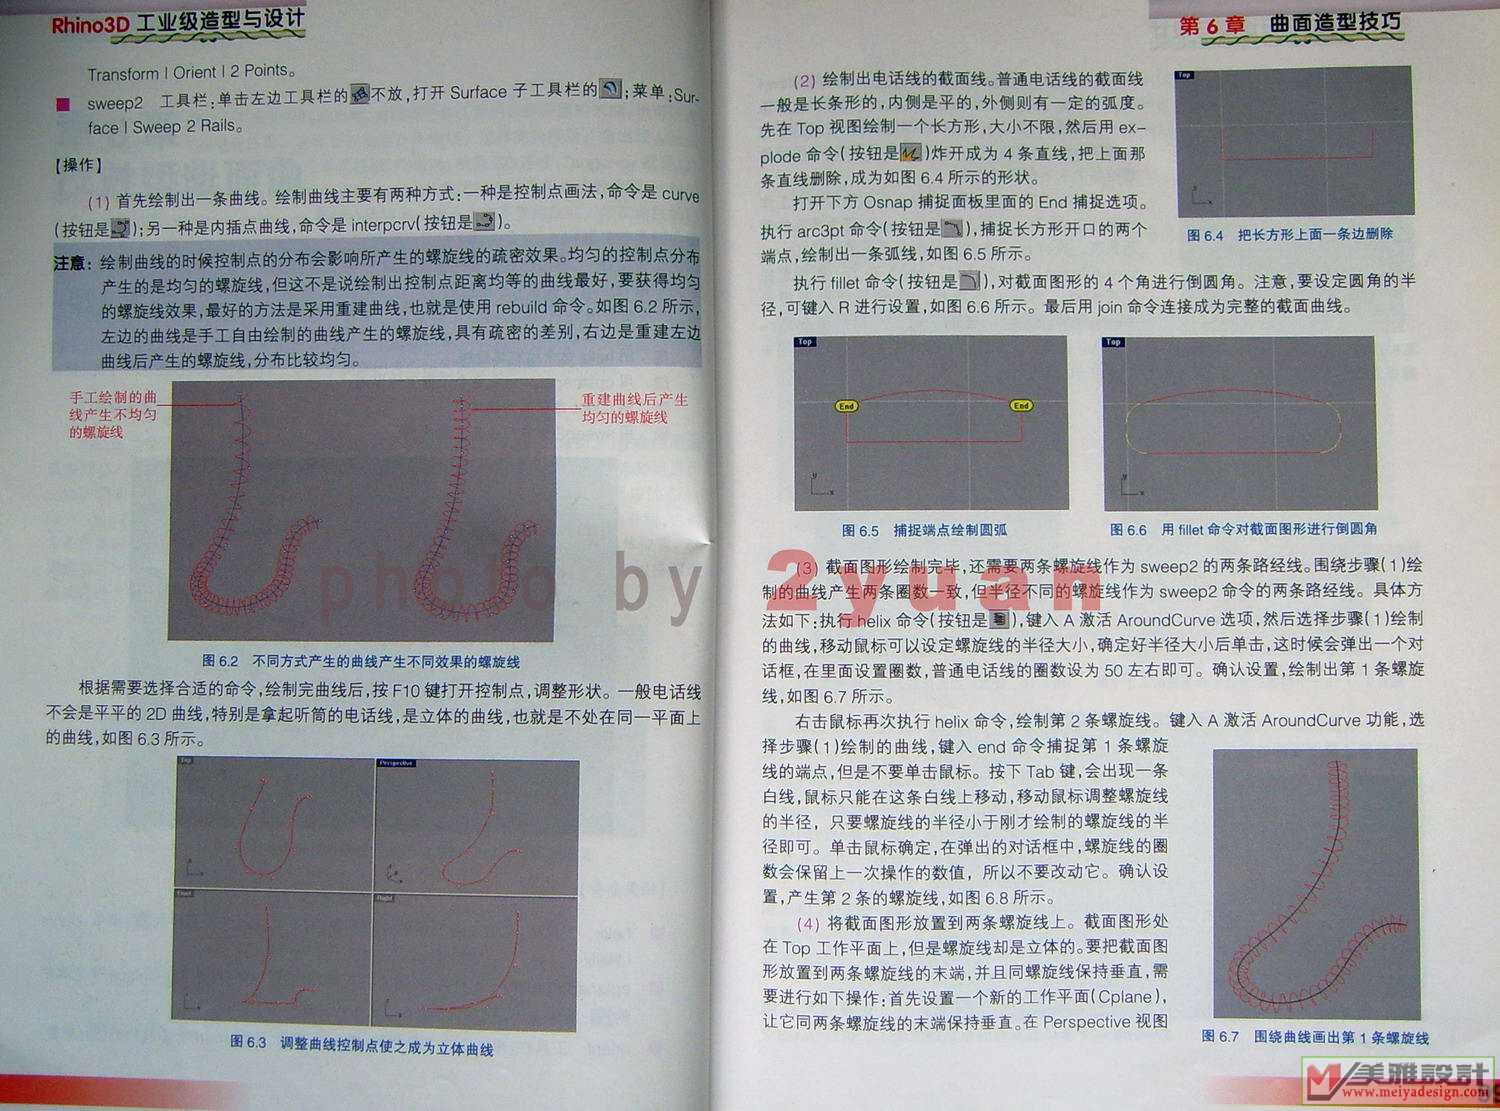 Rhino3D 工业级造型与设计
Transform | Orient | 2 Points。
sweep2 工具栏:单击左边工具栏的不放,打开 Surface 子工具栏的;菜单:Sur-
face | Sweep 2 Rails。
【操作】
(1) 首先绘制出一条曲线。绘制曲线主要有两种方式:一种是控制点画法,命令是 curve
(按钮是);另一种是内插点曲线,命令是 interpcrv(按钮是)。
注意: 绘制曲线的时候控制点的分布会影响所产生的螺旋线的疏密效果。均匀的控制点分布
产生的是均匀的螺旋线,但这不是说绘制出控制点距离均等的曲线最好,要获得均匀
的螺旋线效果,最好的方法是采用重建曲线,也就是使用 rebuild 命令。如图 6.2 所示,
左边的曲线是手工自由绘制的曲线产生的螺旋线,具有疏密的差别,右边是重建左边
曲线后产生的螺旋线,分布比较均匀。
手工绘制的曲
线产生不均匀
的螺旋线
重建曲线后产生
均匀的螺旋线
图 6.2 不同方式产生的曲线产生不同效果的螺旋线
根据需要选择合适的命令,绘制完曲线后,按 F10 键打开控制点,调整形状。一般电话线
不会是平平的 2D 曲线,特别是拿起听筒的电话线,是立体的曲线,也就是不处在同一平面上
的曲线,如图 6.3 所示。
Top
Perspective
Front
Right
图 6.3 调整曲线控制点使之成为立体曲线
第 6 章 曲面造型技巧
(2) 绘制出电话线的截面线。普通电话线的截面线
一般是长条形的,内侧是平的,外侧则有一定的弧度。
先在 Top 视图绘制一个长方形,大小不限,然后用 ex-
plode 命令(按钮是)炸开成为 4 条直线,把上面那
条直线删除,成为如图 6.4 所示的形状。
打开下方 Osnap 捕捉面板里面的 End 捕捉选项。
执行 arc3pt 命令(按钮是),捕捉长方形开口的两个
端点,绘制出一条弧线,如图 6.5 所示。
Top
图 6.4 把长方形上面一条边删除
执行 fillet 命令(按钮是),对截面图形的 4 个角进行倒圆角。注意,要设定圆角的半
径,可键入 R 进行设置,如图 6.6 所示。最后用 join 命令连接成为完整的截面曲线。
Top
End
End
y
x
图 6.5 捕捉端点绘制圆弧
Top
y
x
图 6.6 用 fillet 命令对截面图形进行倒圆角
(3) 截面图形绘制完毕,还需要两条螺旋线作为 sweep2 的两条路经线。围绕步骤(1)绘
制的曲线产生两条圈数一致,但半径不同的螺旋线作为 sweep2 命令的两条路经线。具体方
法如下:执行 helix 命令(按钮是),键入 A 激活 AroundCurve 选项,然后选择步骤(1)绘制
的曲线,移动鼠标可以设定螺旋线的半径大小,确定好半径大小后单击,这时候会弹出一个对
话框,在里面设置圈数,普通电话线的圈数设为 50 左右即可。确认设置,绘制出第 1 条螺旋
线,如图 6.7 所示。
右击鼠标再次执行 helix 命令,绘制第 2 条螺旋线。键入 A 激活 AroundCurve 功能,选
择步骤(1)绘制的曲线,键入 end 命令捕捉第 1 条螺旋
线的端点,但是不要单击鼠标。按下 Tab 键,会出现一条
白线,鼠标只能在这条白线上移动,移动鼠标调整螺旋线
的半径,只要螺旋线的半径小于刚才绘制的螺旋线的半
径即可。单击鼠标确定,在弹出的对话框中,螺旋线的圈
数会保留上一次操作的数值,所以不要改动它。确认设
置,产生第 2 条的螺旋线,如图 6.8 所示。
(4) 将截面图形放置到两条螺旋线上。截面图形处
在 Top 工作平面上,但是螺旋线却是立体的。要把截面图
形放置到两条螺旋线的末端,并且同螺旋线保持垂直,需
要进行如下操作:首先设置一个新的工作平面(Cplane),
让它同两条螺旋线的末端保持垂直。在 Perspective 视图
图 6.7 围绕曲线画出第 1 条螺旋线
photo by 2yuan
美雅設計
www.meiyadesign.com